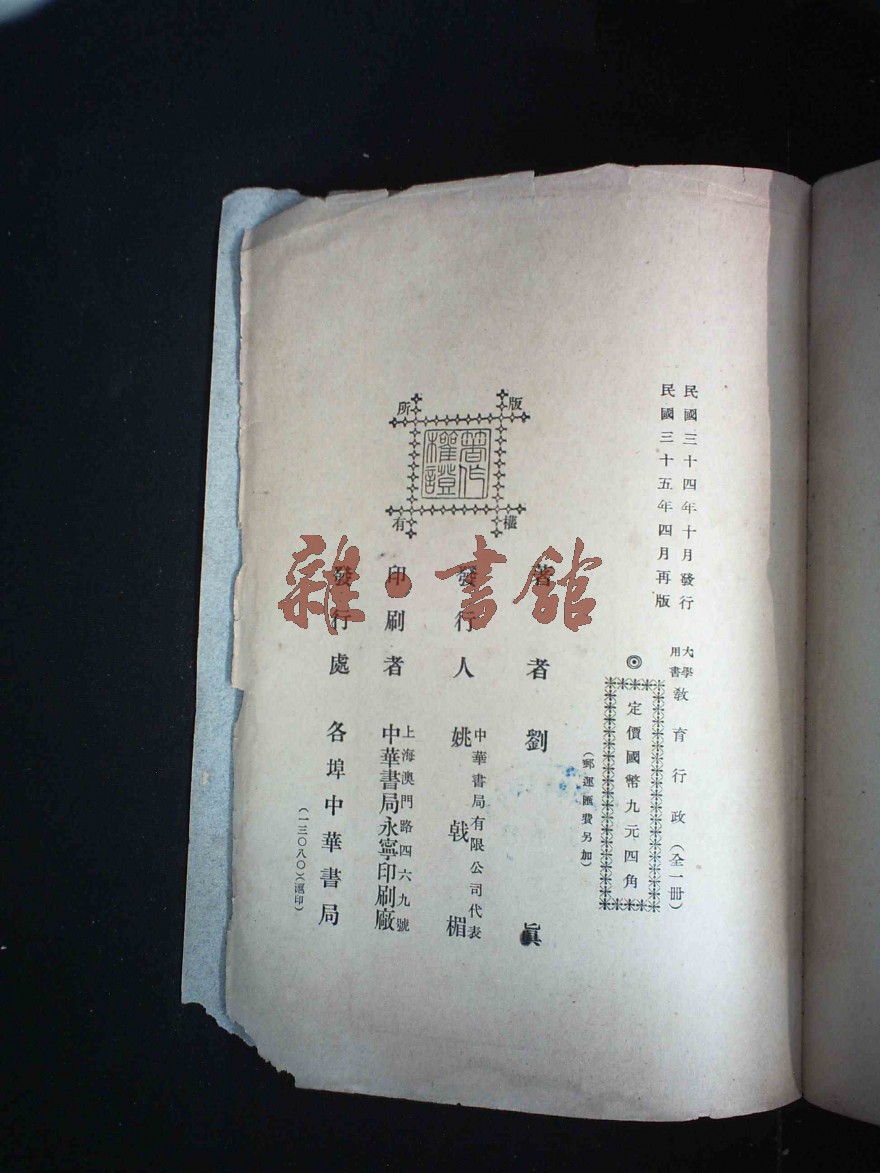 民國三十四年十月發行
民國三十五年四月再版
大學用書 教育行政（全一冊）
◎ 定價國幣九元四角
（郵運匯費另加）
著者 劉眞
發行人 中華書局有限公司代表
姚戟楣
印刷者 上海澳門路四六九號
中華書局永寧印刷廠
發行處 各埠中華書局
（一三〇八〇）（滬印）
版權所有
著作權證
雜·書館